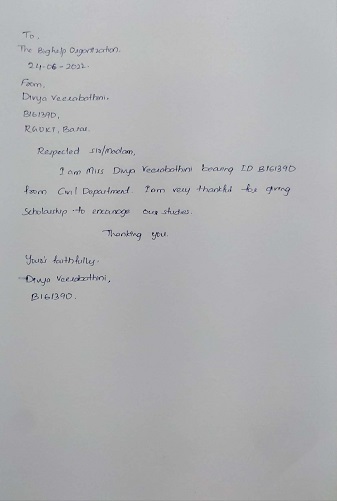 To,
The Bighelp Organization.
24-06-2022.
From,
Divya Veerabathini.
B161390,
RGUKT, Basar.
Respected sir/madam,
I am Miss Divya Veerabathini bearing ID B161390
from Civil Department. I am very thankful for giving
Scholarship to encourage our studies.
Thanking you.
Yours faithfully.
Divya Veerabathini,
B161390.